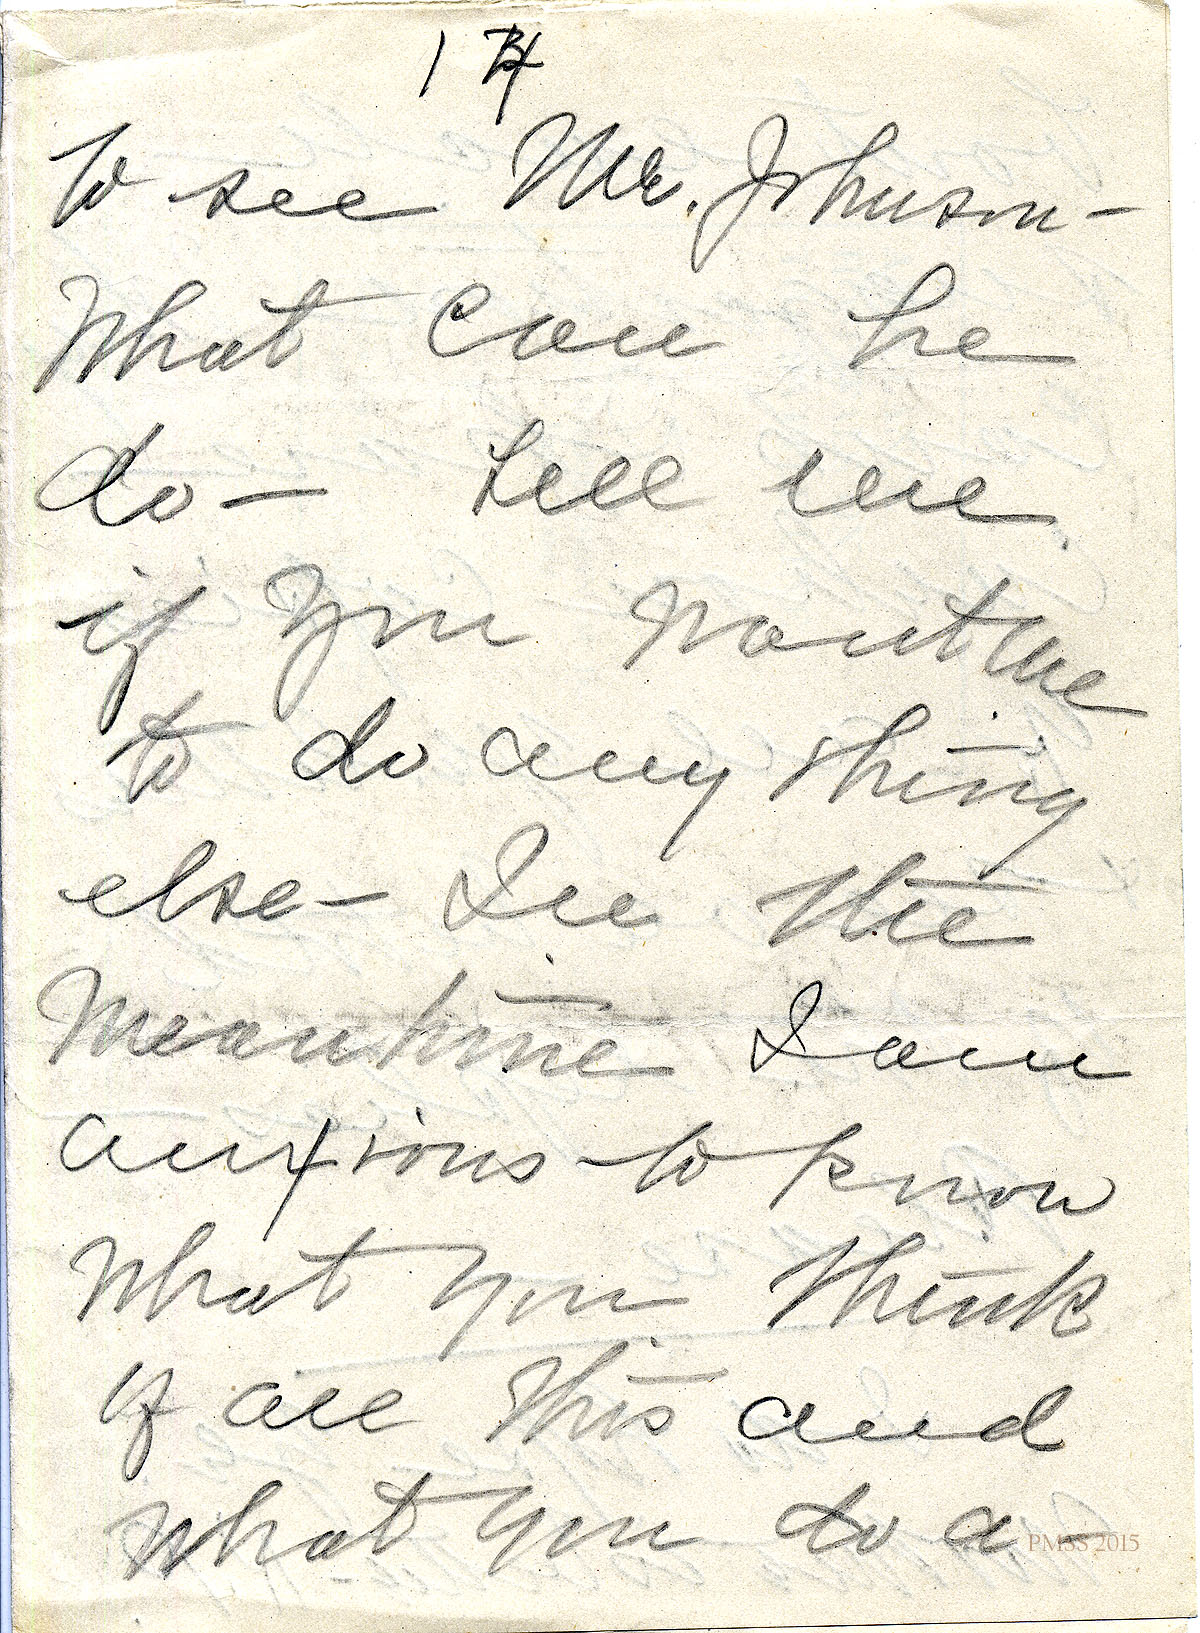 14
to see Mr. Johnson-
What can he
do- tell me
if you want me
to do any thing
else- In the
Meantime I am
anxious to know
What you think
of all this and
what you do a
PMSS 2015